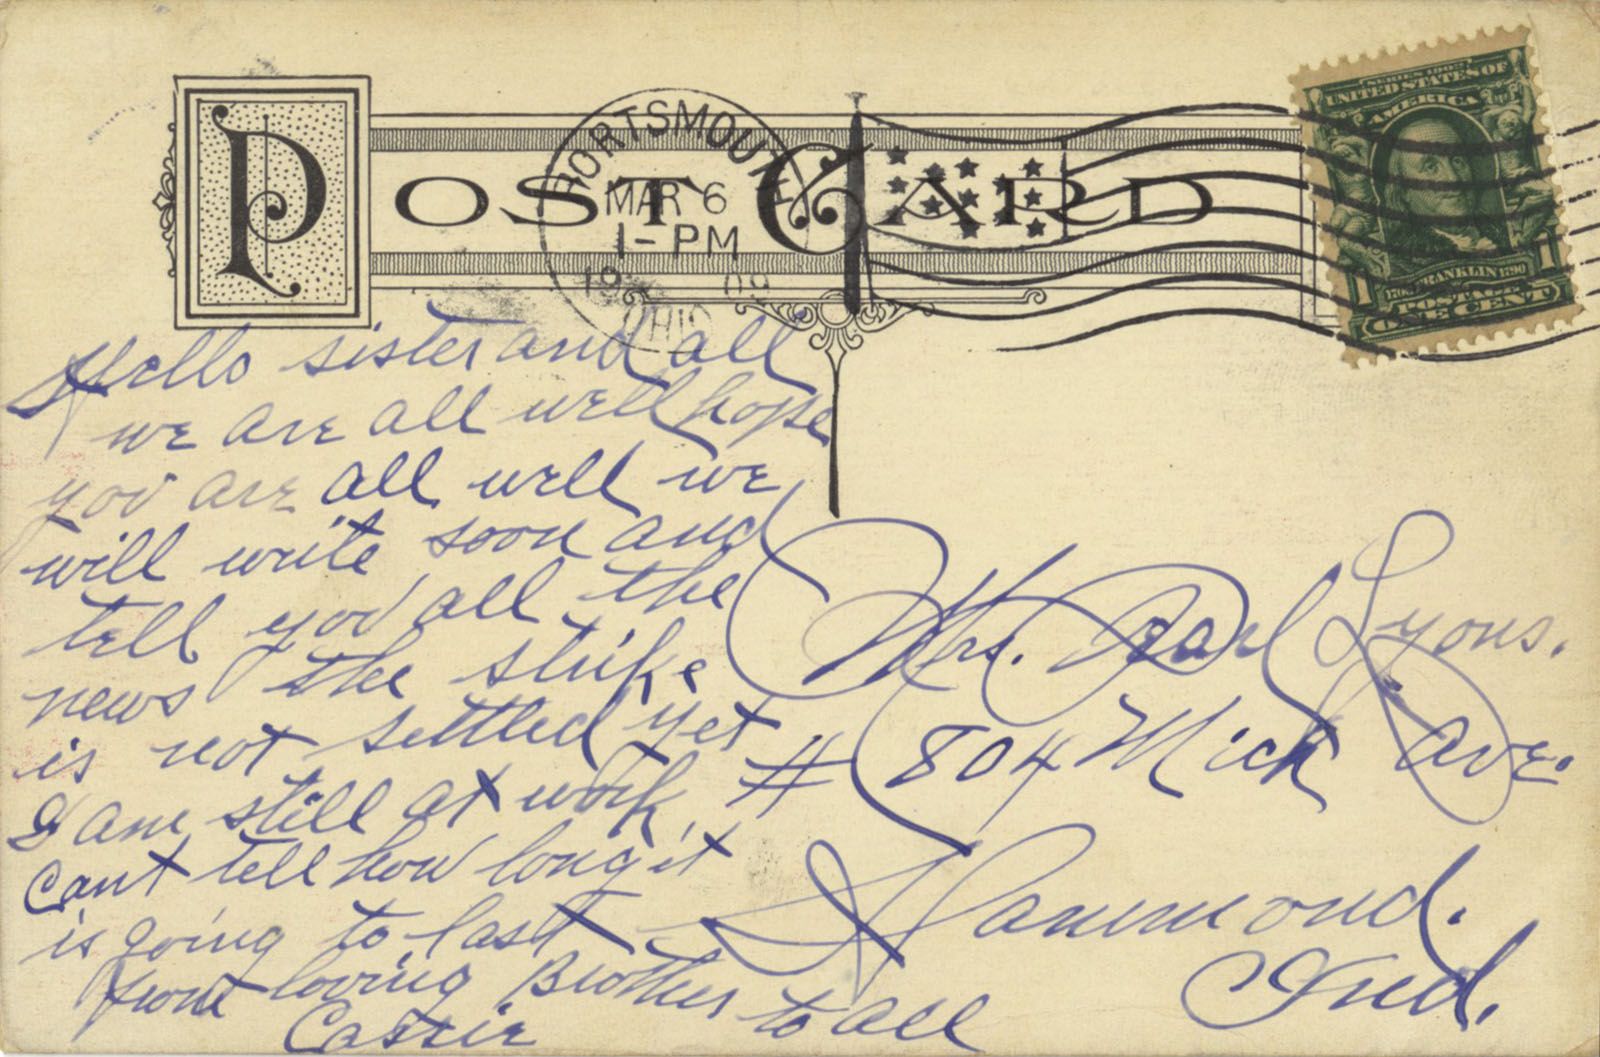 POST CARD
PORTSMOUTH
MAR 6
1-PM
1909
OHIO
SERIES 1902
UNITED STATES OF
AMERICA
1 FRANKLIN 1790 1
POSTAGE
ONE CENT
Hello sister and all
we are all well hope
you are all well we
will write soon and
tell you all the
news the strike
is not settled yet
I am still at work,
Cant tell how long it
is going to last
from loving Brother to all
Cassie
Mrs. Pearl Lyons.
# 804 Mich Ave.
Hammond.
Ind.